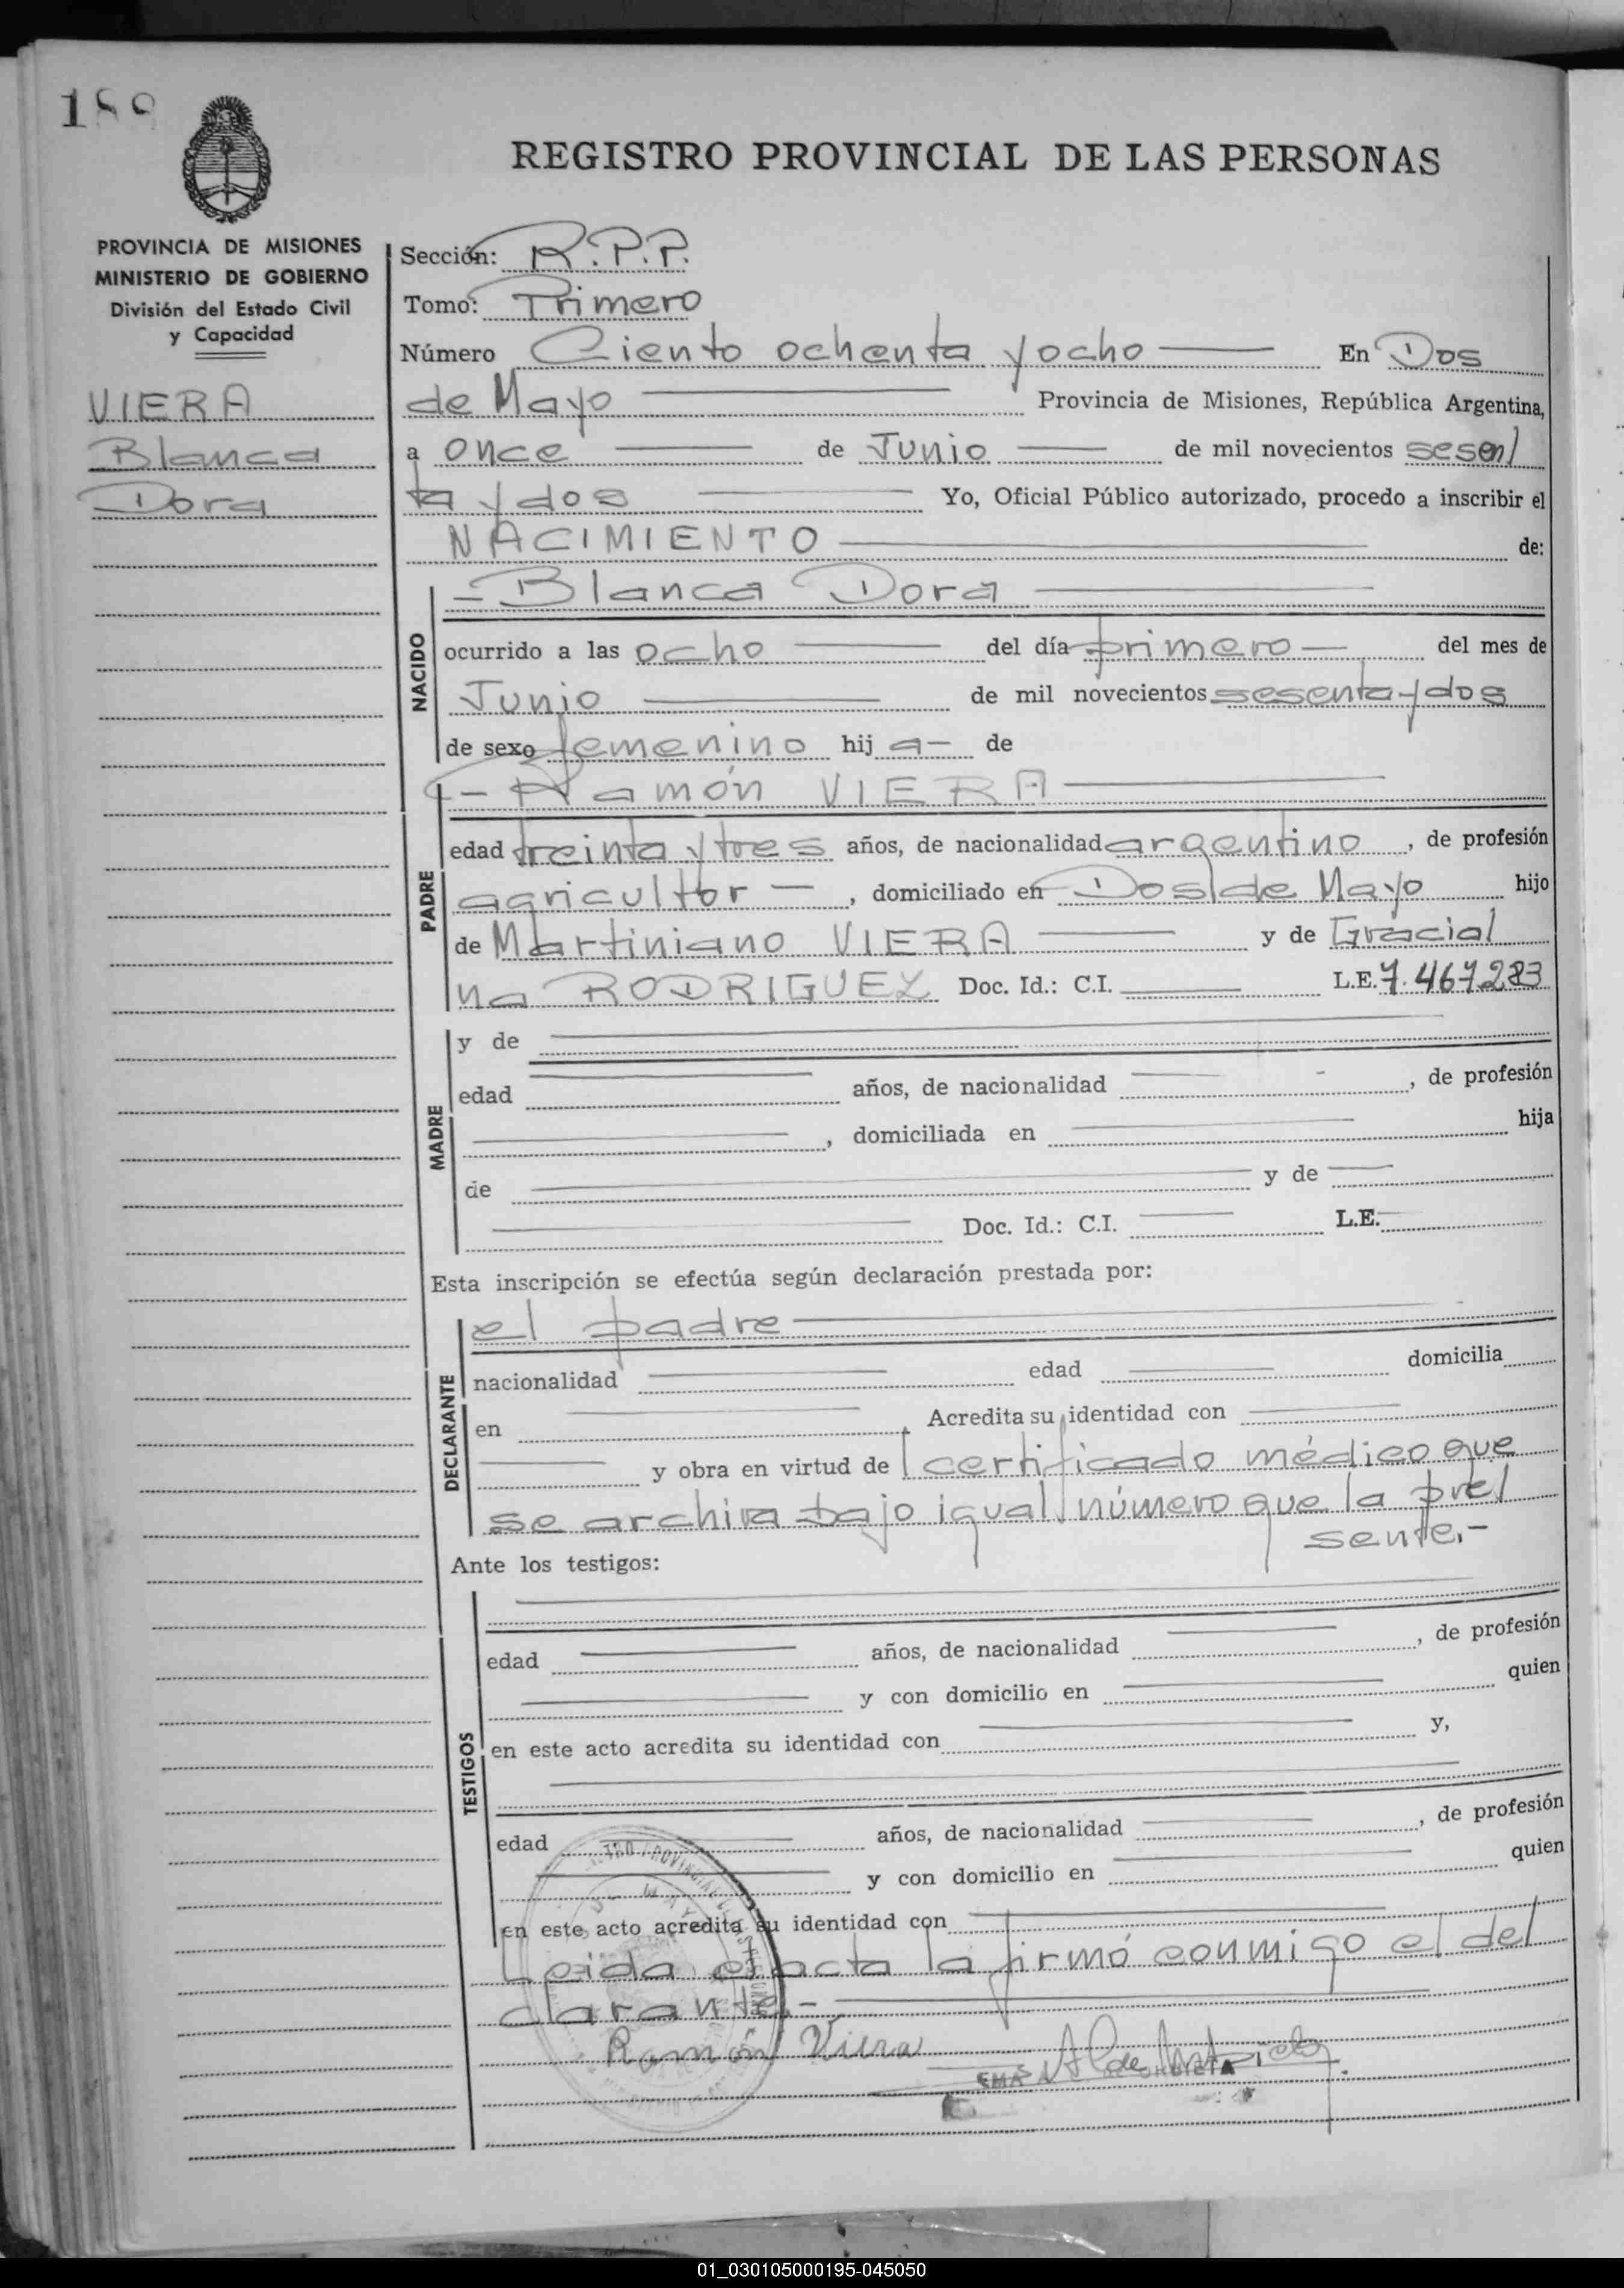 188
REGISTRO PROVINCIAL DE LAS PERSONAS
PROVINCIA DE MISIONES
MINISTERIO DE GOBIERNO
División del Estado Civil
y Capacidad
VIERA
Blanca
Dora
Sección: R.P.P.
Tomo: Primero
Número Ciento ochenta y ocho En Dos
de Mayo Provincia de Misiones, República Argentina,
a once de Junio de mil novecientos sesen/
ta y dos Yo, Oficial Público autorizado, procedo a inscribir el
NACIMIENTO de:
NACIDO
-Blanca Dora
ocurrido a las ocho del día primero del mes de
Junio de mil novecientos sesenta y dos
de sexo femenino hij a- de
PADRE
- Ramón VIERA
edad treinta y tres años, de nacionalidad argentino, de profesión
agricultor -, domiciliado en Dos de Mayo hijo
de Martiniano VIERA y de Gracia/
na RODRIGUEZ Doc. Id.: C.I. L.E. 7.467.283
MADRE
y de
edad años, de nacionalidad , de profesión
, domiciliada en hija
de y de
Doc. Id.: C.I. L.E.
Esta inscripción se efectúa según declaración prestada por:
DECLARANTE
el padre
nacionalidad edad domicilia
en Acredita su identidad con
y obra en virtud de/certificado médico que
se archiva bajo igual número que la pre/
sente.-
Ante los testigos:
TESTIGOS
edad años, de nacionalidad , de profesión
y con domicilio en quien
en este acto acredita su identidad con y,
edad años, de nacionalidad , de profesión
y con domicilio en quien
en este acto acredita su identidad con
Leida el acta la firmó conmigo el de/
clarante.-
Ramón Viera
01_030105000195-045050